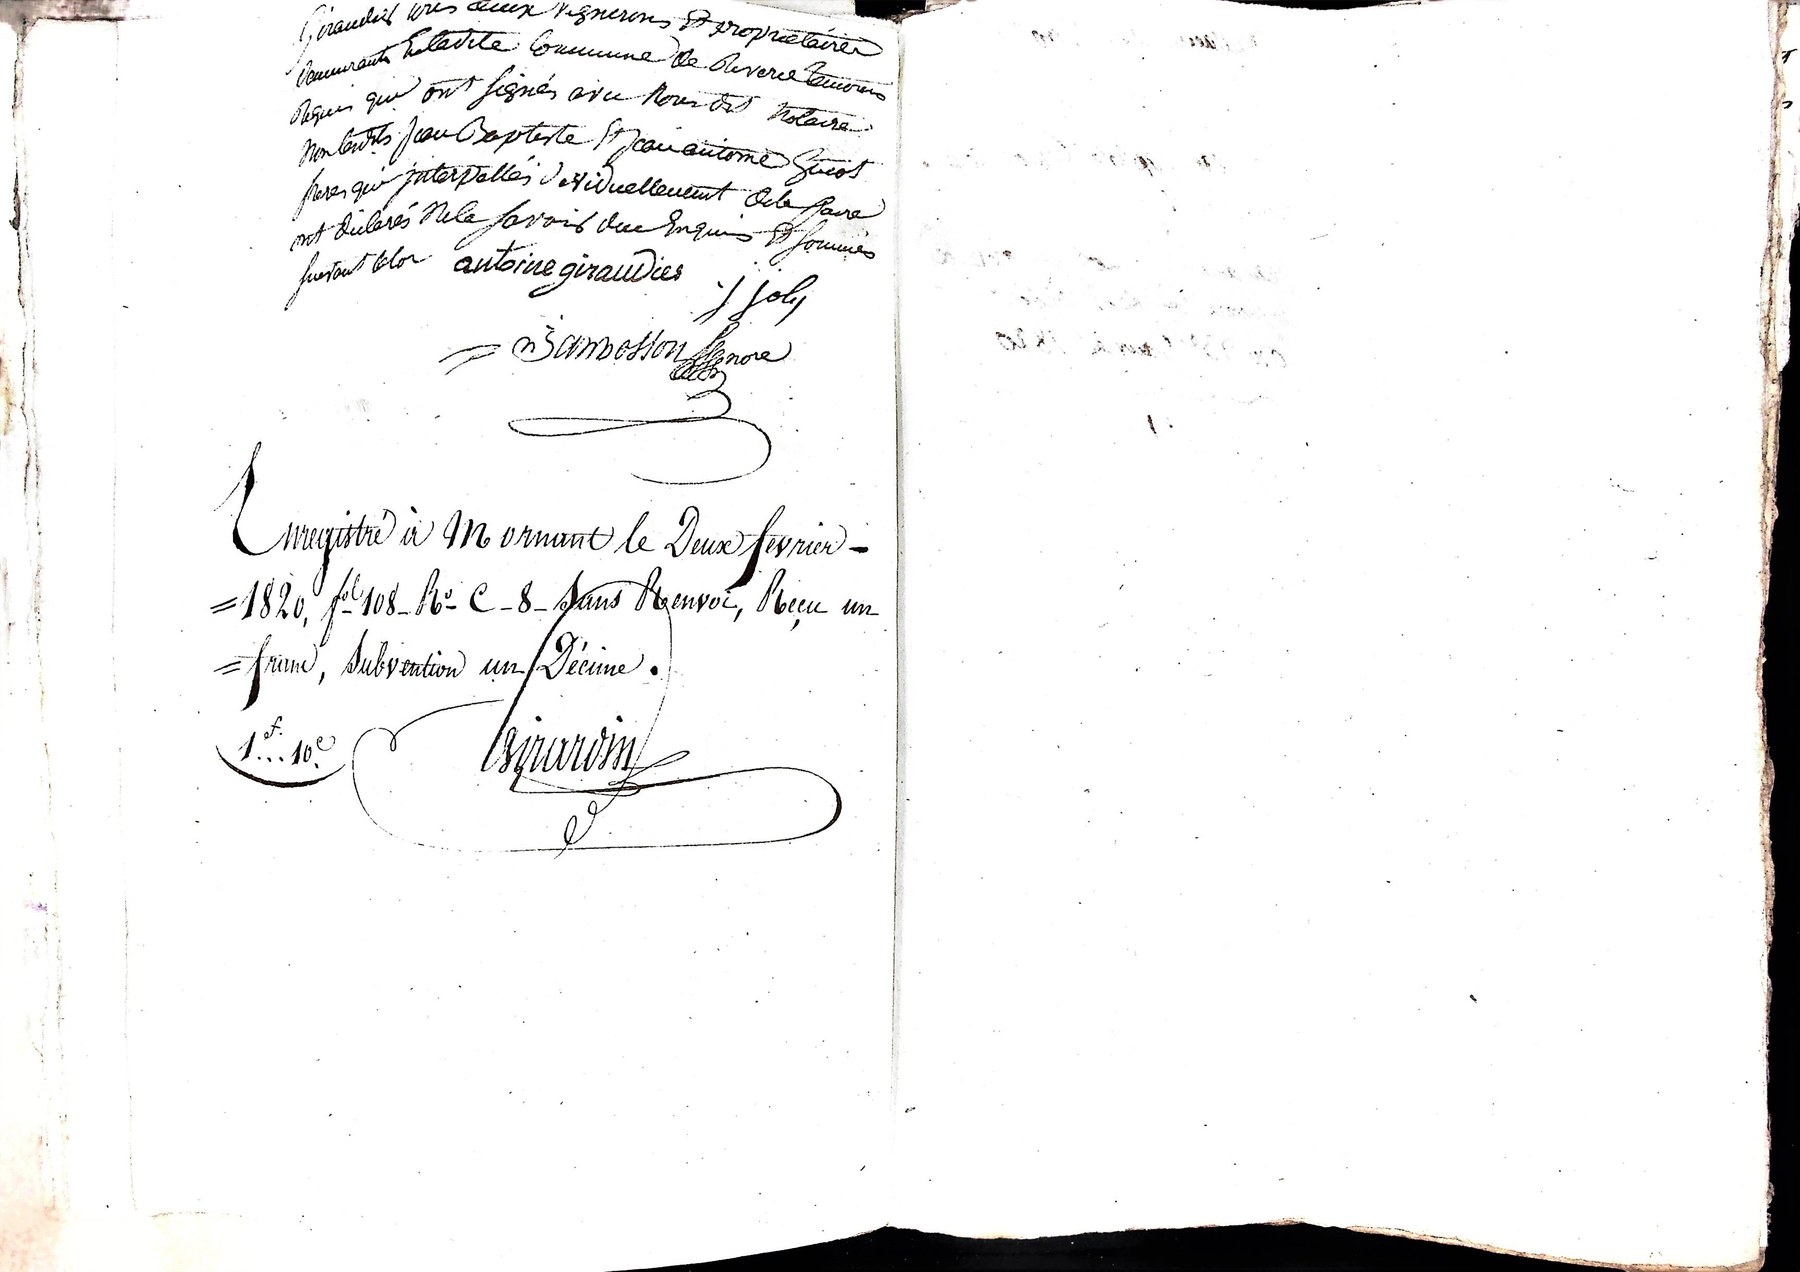 Giraudier tous deux vignerons Et propriétaires
demeurants En ladite Commune de Riverie temoins
Requis qui ont signés avec Nous dit Notaire
Non lesdits Jean Baptiste Et Jean antoine Guiot
freres qui interpellés individuellement de le faire
ont déclarés Ne le savoir duement Enquis Et sommés
suivant la loi antoine giraudier
J Joly
Enregistré à Mornant le Deux fevrier -
= 1820, fol 108 - Ro - C - 8 - Sans Renvoi, Reçu un
= franc, Subvention un Décime.
1f. .. 10c.
Girardin